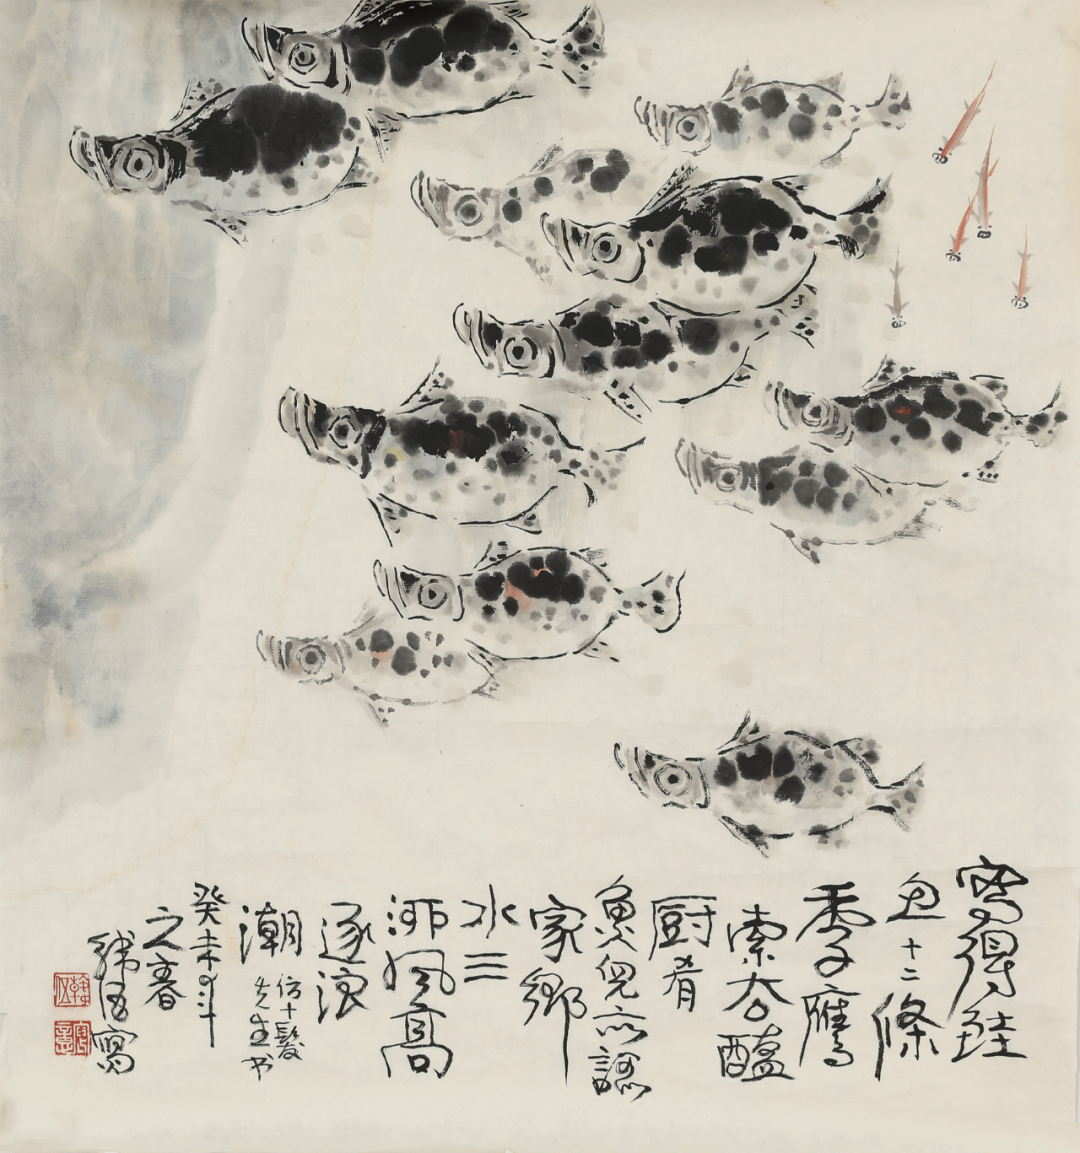 寫得鮭
魚十二條
季鷹
索去
厨肴
魚兒亦認
家鄉
水三
泖風高
逐浪
潮
仿十髮
先生书
癸未年
之春
韓伍寫
韓伍